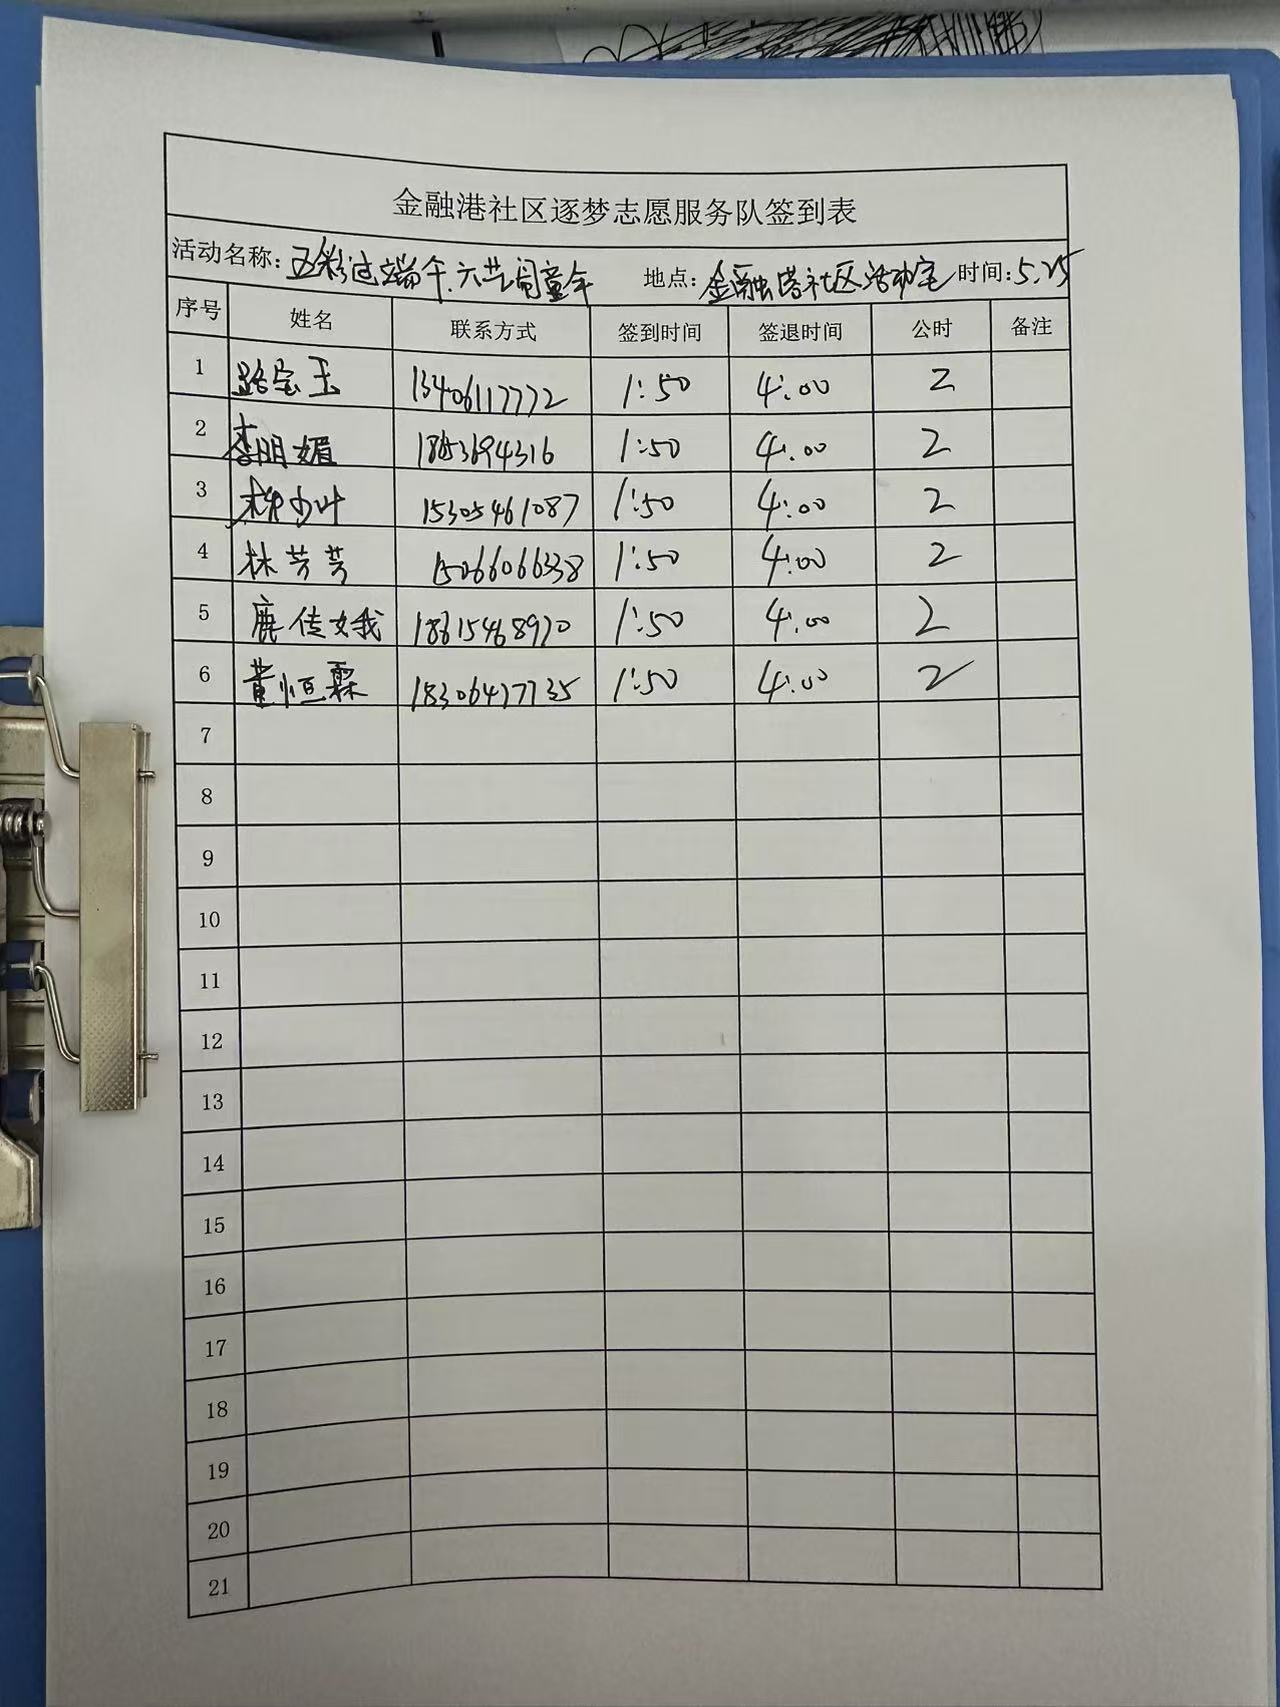 金融港社区逐梦志愿服务队签到表
活动名称: 五彩过端午.六艺闹童年 地点: 金融港社区活动室 时间: 5.25
序号 姓名 联系方式 签到时间 签退时间 公时 备注
1 路宝玉 13406117772 1:50 4:00 2
2 李明媚 1:50 4:00 2
3 林少叶 15305461087 1:50 4:00 2
4 林芳芳 15066066338 1:50 4:00 2
5 鹿传娥 18615468970 1:50 4:00 2
6 黄恒霖 18306477735 1:50 4:00 2
7
8
9
10
11
12
13
14
15
16
17
18
19
20
21